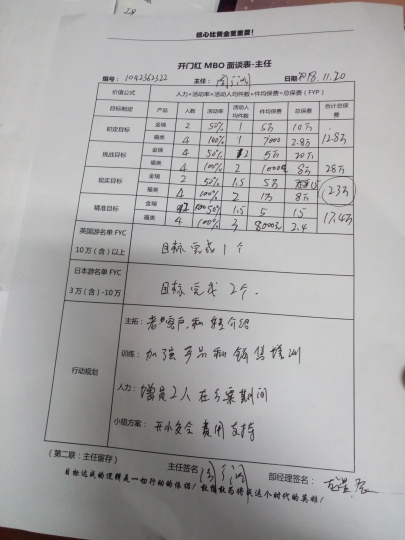 信心比黄金更重要！
开门红 MBO 面谈表-主任
编号：1042362322 主任： 日期 2018.11.20
价值公式 人力*活动率*活动人均件数*件均保费=总保费（FYP）
目标制定 产品 人数 活动率 活动人均件数 件均保费 总保费 合计总保费
初定目标 金瑞 2 50% 1 5万 10万 12.8万
福类 4 100% 1 7000 2.8万
挑战目标 金瑞 4 50% 2 5万 20万 28万
福类 4 100% 2 10000 8万
现实目标 金瑞 2 50% 1.5 5万 15 23万
福类 4 100% 2 1万 8万
精准目标 金瑞 2 50% 1.5 5 15 17.4万
福类 4 100% 3 8000元 2.4
英国游名单 FYC 10万（含）以上 目标完成1个
日本游名单 FYC 3万（含）-10万 目标完成2个.
行动规划
主拓：老客户和转介绍
训练：加强产品和销售培训
人力：增员2人在方案期间
小组方案：开小客会 费用支持
（第二联：主任留存） 主任签名： 部经理签名：
目标达成的逻辑是一切行动的依据！